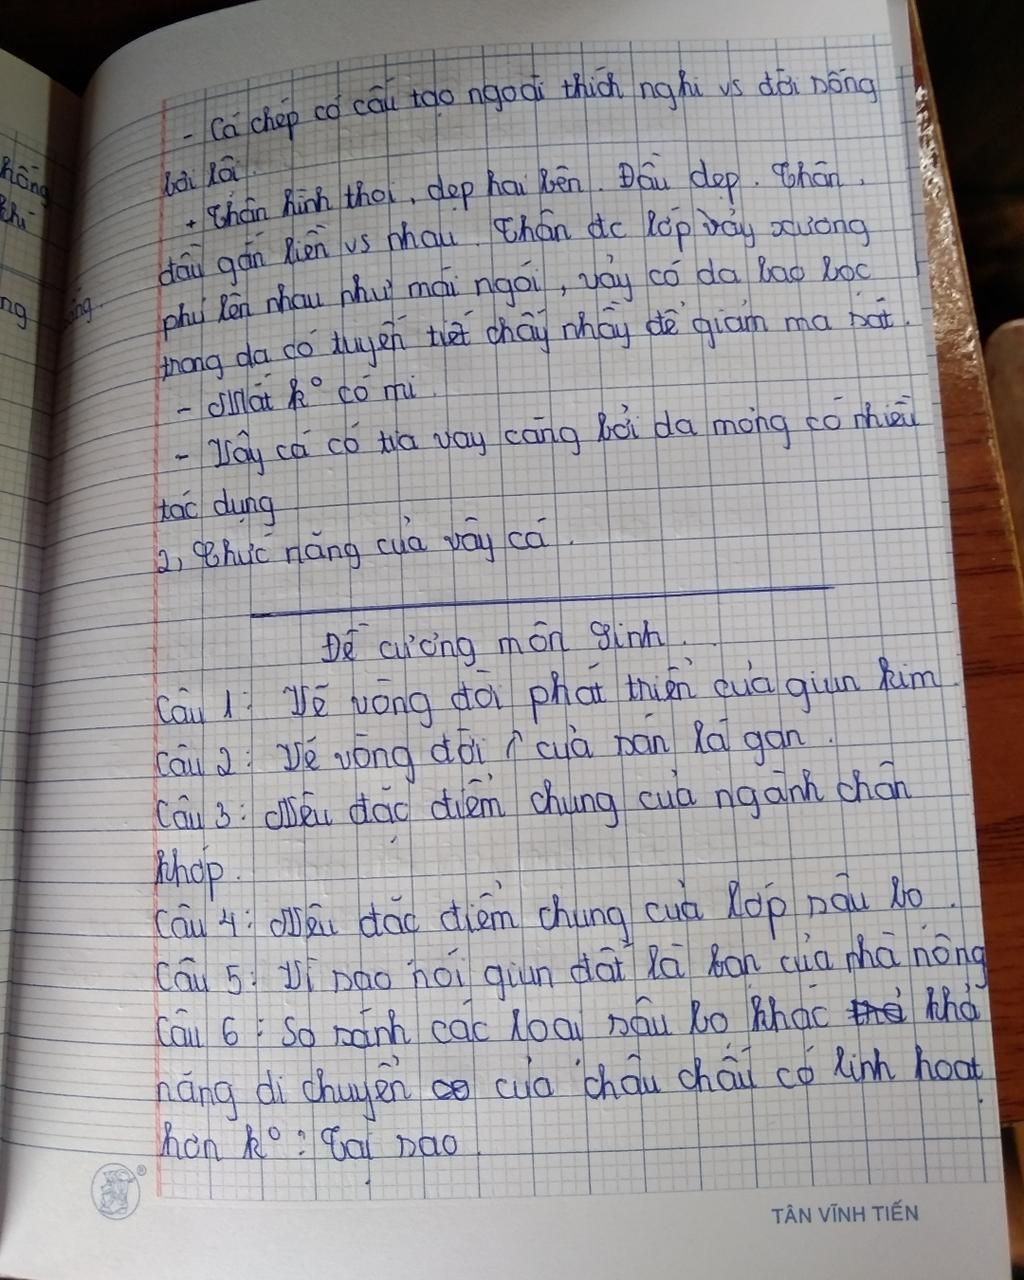 - Cá chép có cấu tạo ngoài thích nghi vs đời sống
bơi lội.
+ Thân hình thoi, dẹp hai bên. Đầu dẹp. Thân,
đầu gắn liền vs nhau. Thân đc lớp vảy xương
phủ lên nhau như mái ngói, vảy có da bao bọc
trong da có tuyến tiết chấy nhầy để giảm ma sát.
- Mắt k° có mi.
- Vây cá có tia vay căng bởi da mỏng có nhiều
tác dụng
2, Chức năng của vây cá.
Đề cương môn sinh.
Câu 1: Vẽ vòng đời phát triển của giun kim.
Câu 2: Vẽ vòng đời ↑ của sán lá gan.
Câu 3: Nêu đặc điểm chung của ngành chân
khớp.
Câu 4: Nêu đặc điểm chung của lớp sâu bọ.
Câu 5: Vì sao nói giun đất là bạn của nhà nông
Câu 6: So sánh các loại sâu bọ khác khả
năng di chuyển của châu chấu có linh hoạt
hơn k°: Tại sao.
hông
khi
ng
TÂN VĨNH TIẾN